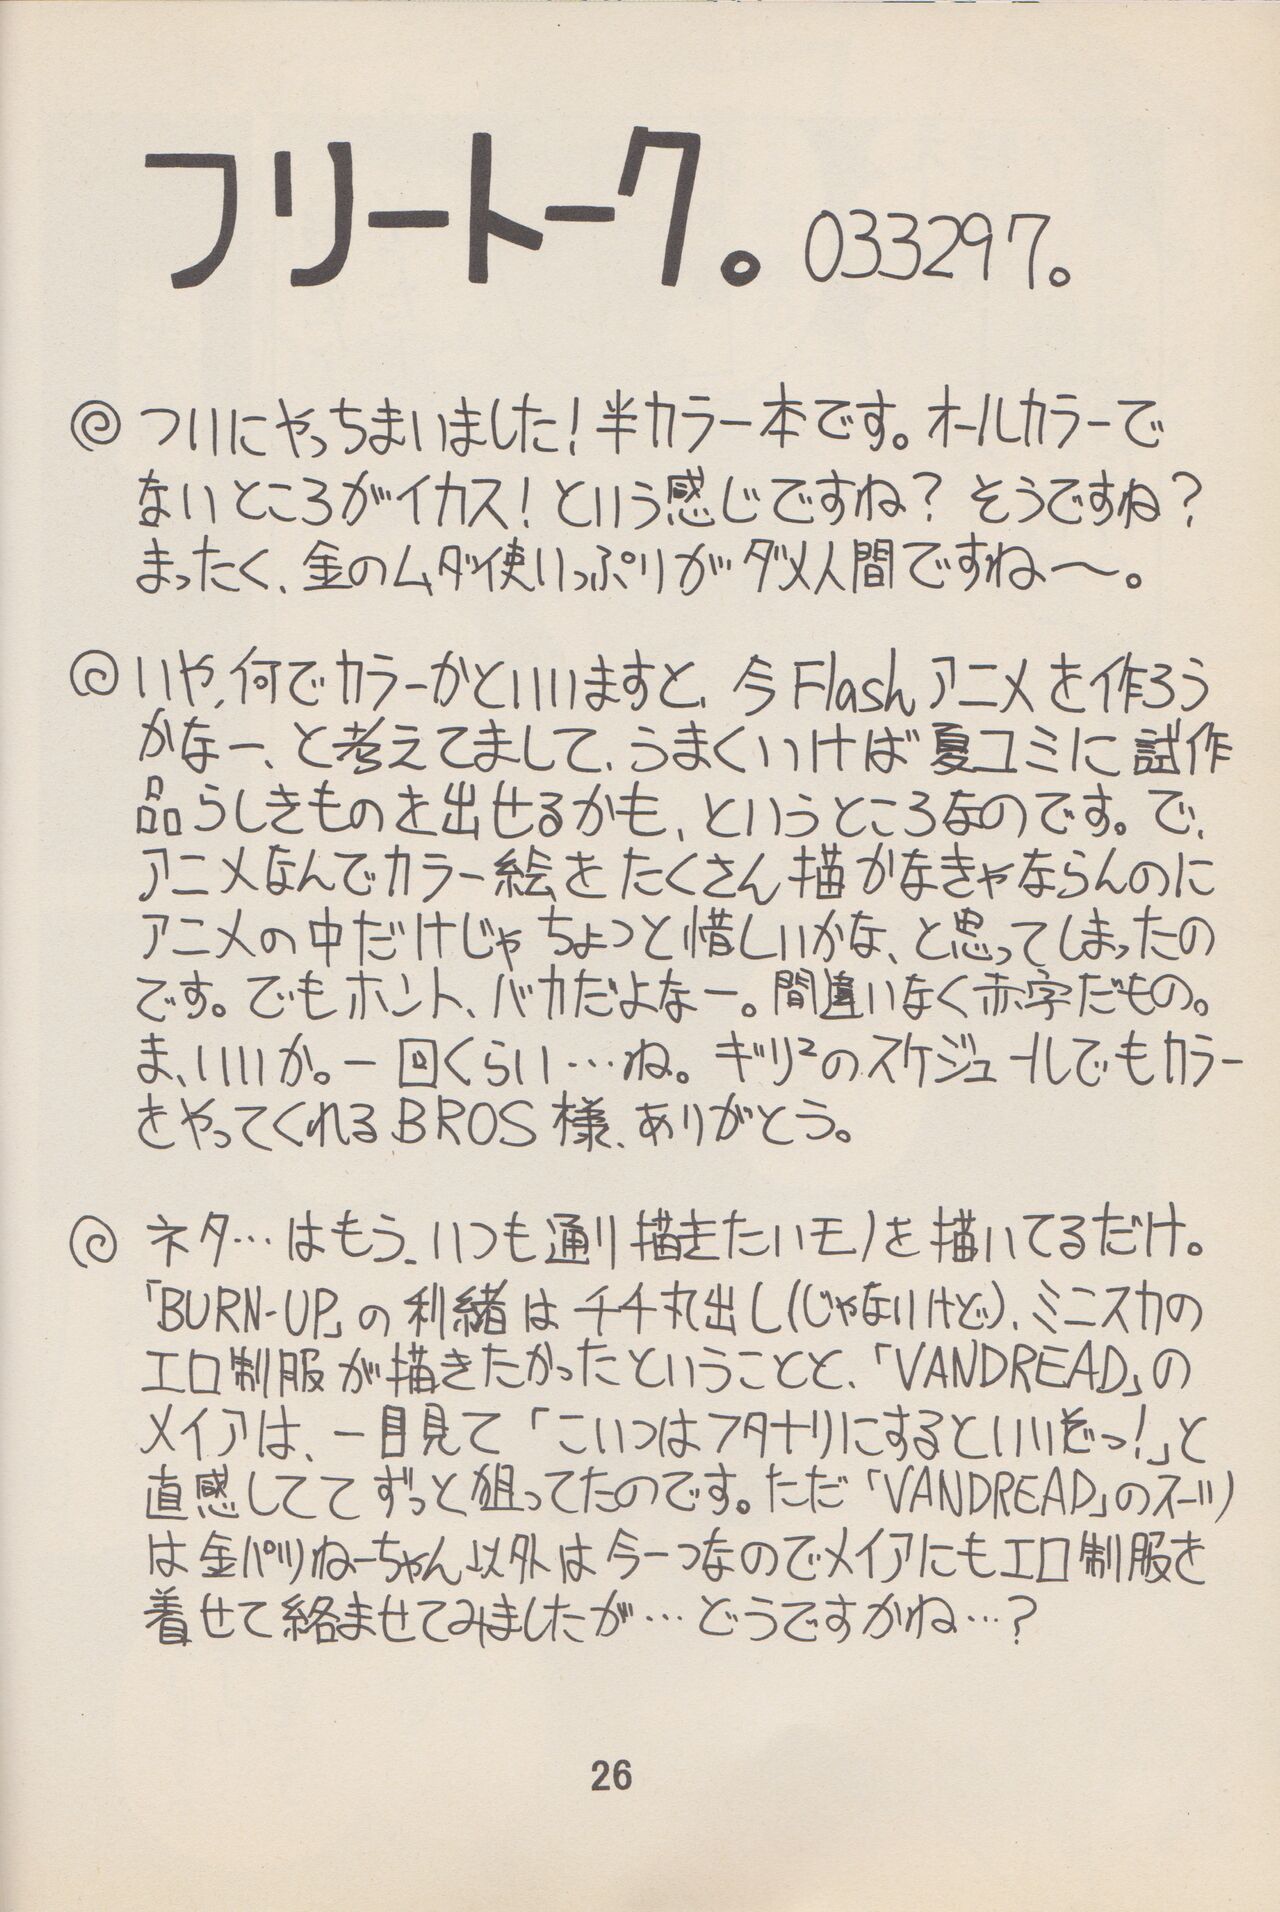 フリートーク。033297。
ついにやっちまいました！半カラー本です。オールカラーで
ないところがイカス！という感じですね？そうですね？
まったく、金のムダ使いっぷりがダメ人間ですね〜。
いや、何でカラーかといいますと、今Flashアニメを作ろう
かなー、と考えてまして、うまくいけば夏コミに試作
品らしきものを出せるかも、というところなのです。で、
アニメなんでカラー絵をたくさん描かなきゃならんのに
アニメの中だけじゃちょっと惜しいかな、と思ってしまったの
です。でもホント、バカだよなー。間違いなく赤字だもの。
ま、いいか。一回くらい…ね。ギリ²のスケジュールでもカラー
をやってくれるBROS様、ありがとう。
ネタ…はもう、いつも通り描きたいモノを描いてるだけ。
「BURN-UP」の利緒はチチ丸出し（じゃないけど）、ミニスカの
エロ制服が描きたかったということと、「VANDREAD」の
メイアは、一目見て「こいつはフタナリにするといいぞっ！」と
直感しててずっと狙ってたのです。ただ「VANDREAD」のスーツ
は金パツねーちゃん以外は今一つなのでメイアにもエロ制服を
着せて絡ませてみましたが…どうですかね…？
26